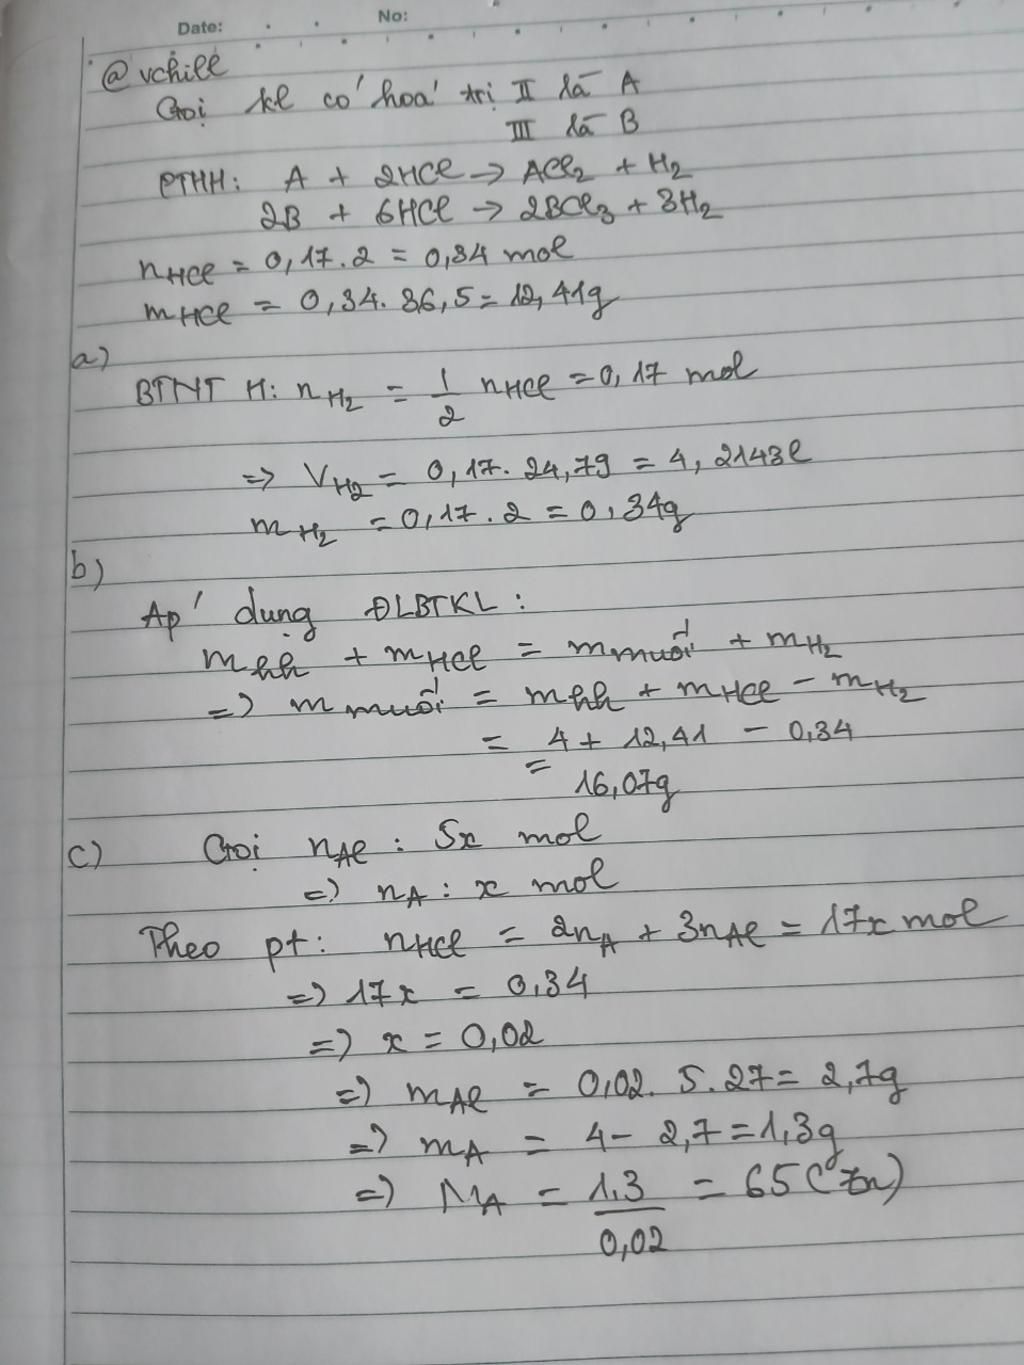 Date: No:
@vchill
Gọi kl có hoá trị II là A
III là B
PTHH: A + 2HCl → ACl₂ + H₂
2B + 6HCl → 2BCl₃ + 3H₂
nHCl = 0,17.2 = 0,34 mol
mHCl = 0,34. 36,5 = 12,41g
a)
BTNT H: nH₂ = 1/2 nHCl = 0,17 mol
=> VH₂ = 0,17. 24,79 = 4,2143l
mH₂ = 0,17.2 = 0,34g
b)
Áp dụng ĐLBTKL:
mhh + mHCl = mmuối + mH₂
=> mmuối = mhh + mHCl - mH₂
= 4 + 12,41 - 0,34
= 16,07g
c) Gọi nAl : 5x mol
=> nA : x mol
Theo pt: nHCl = 2nA + 3nAl = 17x mol
=> 17x = 0,34
=> x = 0,02
=> mAl = 0,02. 5.27 = 2,7g
=> mA = 4 - 2,7 = 1,3g
=> MA = 1,3/0,02 = 65 (Zn)